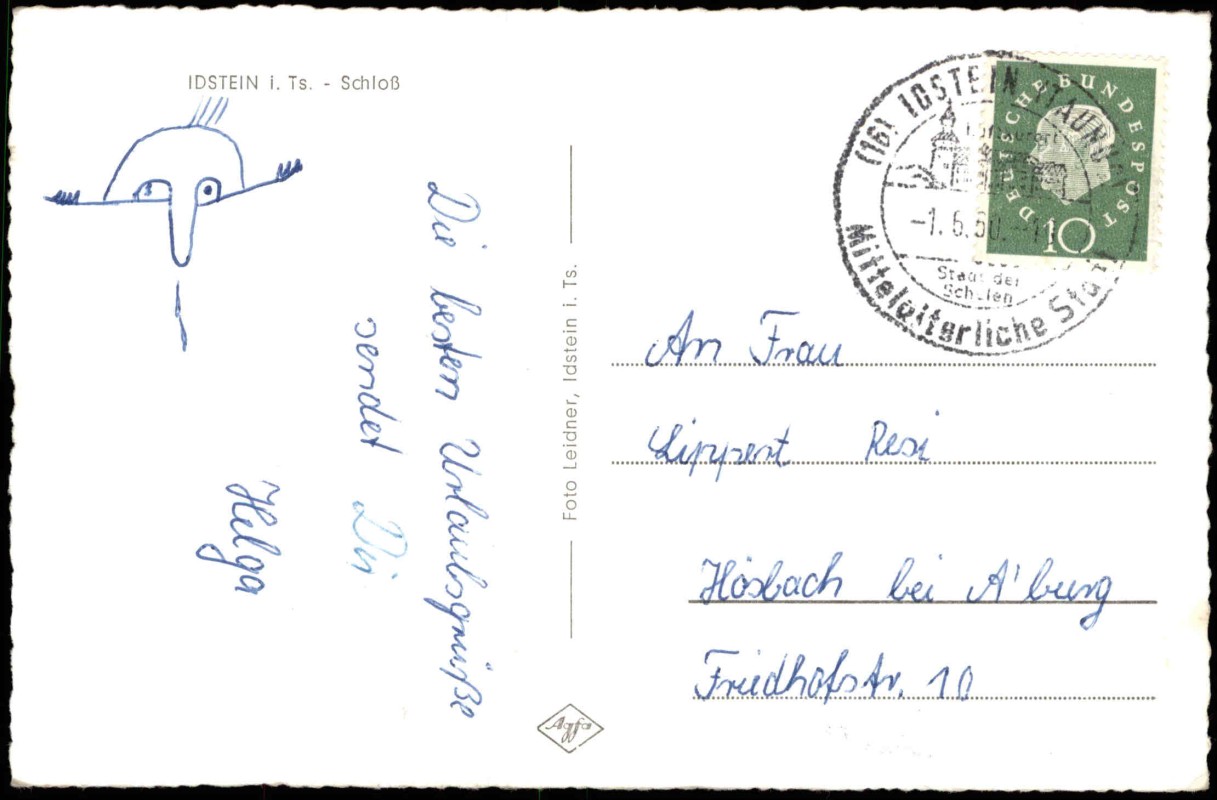 IDSTEIN i. Ts. - Schloß
Die besten Urlaubsgrüße
sendet Dir
Helga
Foto Leidner, Idstein i. Ts.
Agfa
(16) IDSTEIN (TAUNUS)
Luftkurort
-1.6.60.-11
Stadt der
Schulen
Mittelalterliche Stadt
DEUTSCHE BUNDESPOST
10
An Frau
Lippert Resi
Hösbach bei A'burg
Friedhofstr. 10